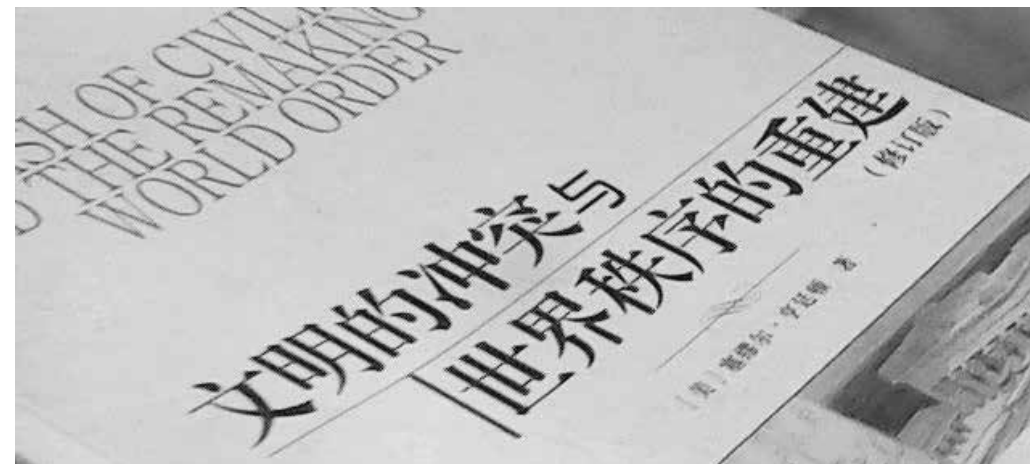 SH OF CIVILI
D THE REMAKING
WORLD ORDER
文明的冲突与
世界秩序的重建
(修订版)
[美] 塞缪尔·亨廷顿 著